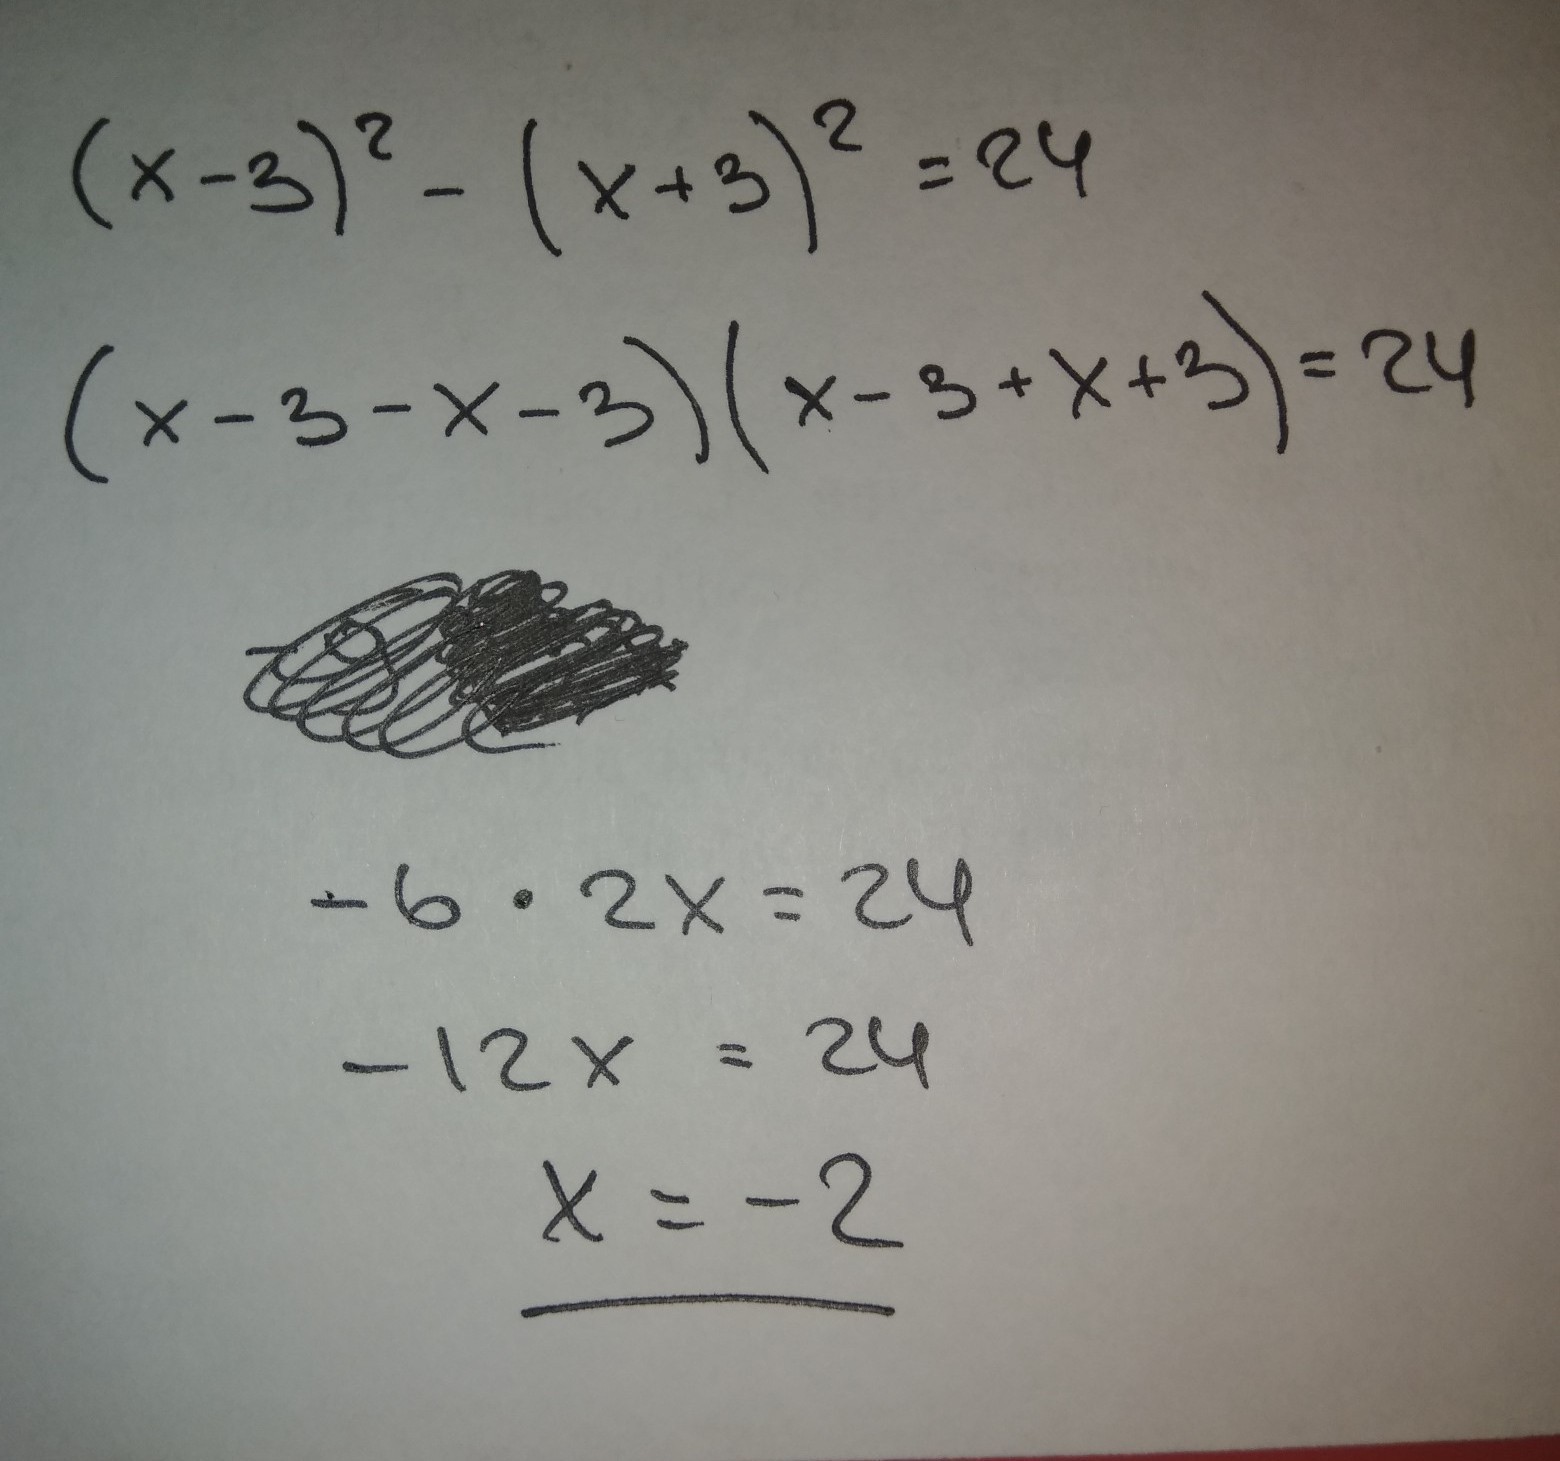 (x-3)² - (x+3)² = 24
(x-3-x-3)(x-3+x+3) = 24
-6 · 2x = 24
-12x = 24
x = -2